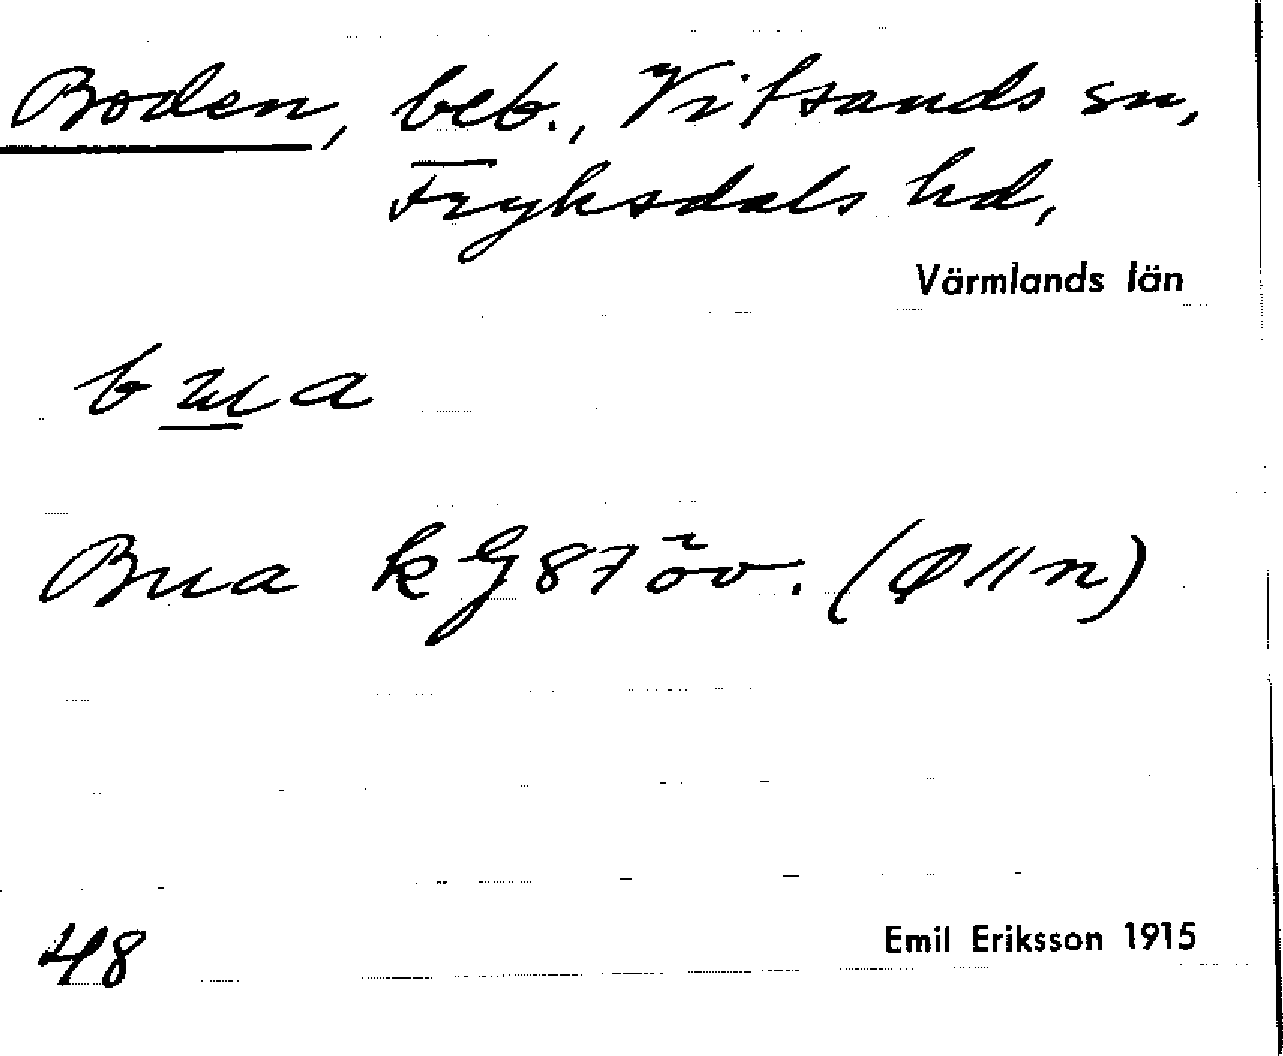 Boden, beb., Vitsands sn,
Fryksdals hd,
Värmlands län
bua
Bua k G 87 öv. (Ø 11 n)
48
Emil Eriksson 1915